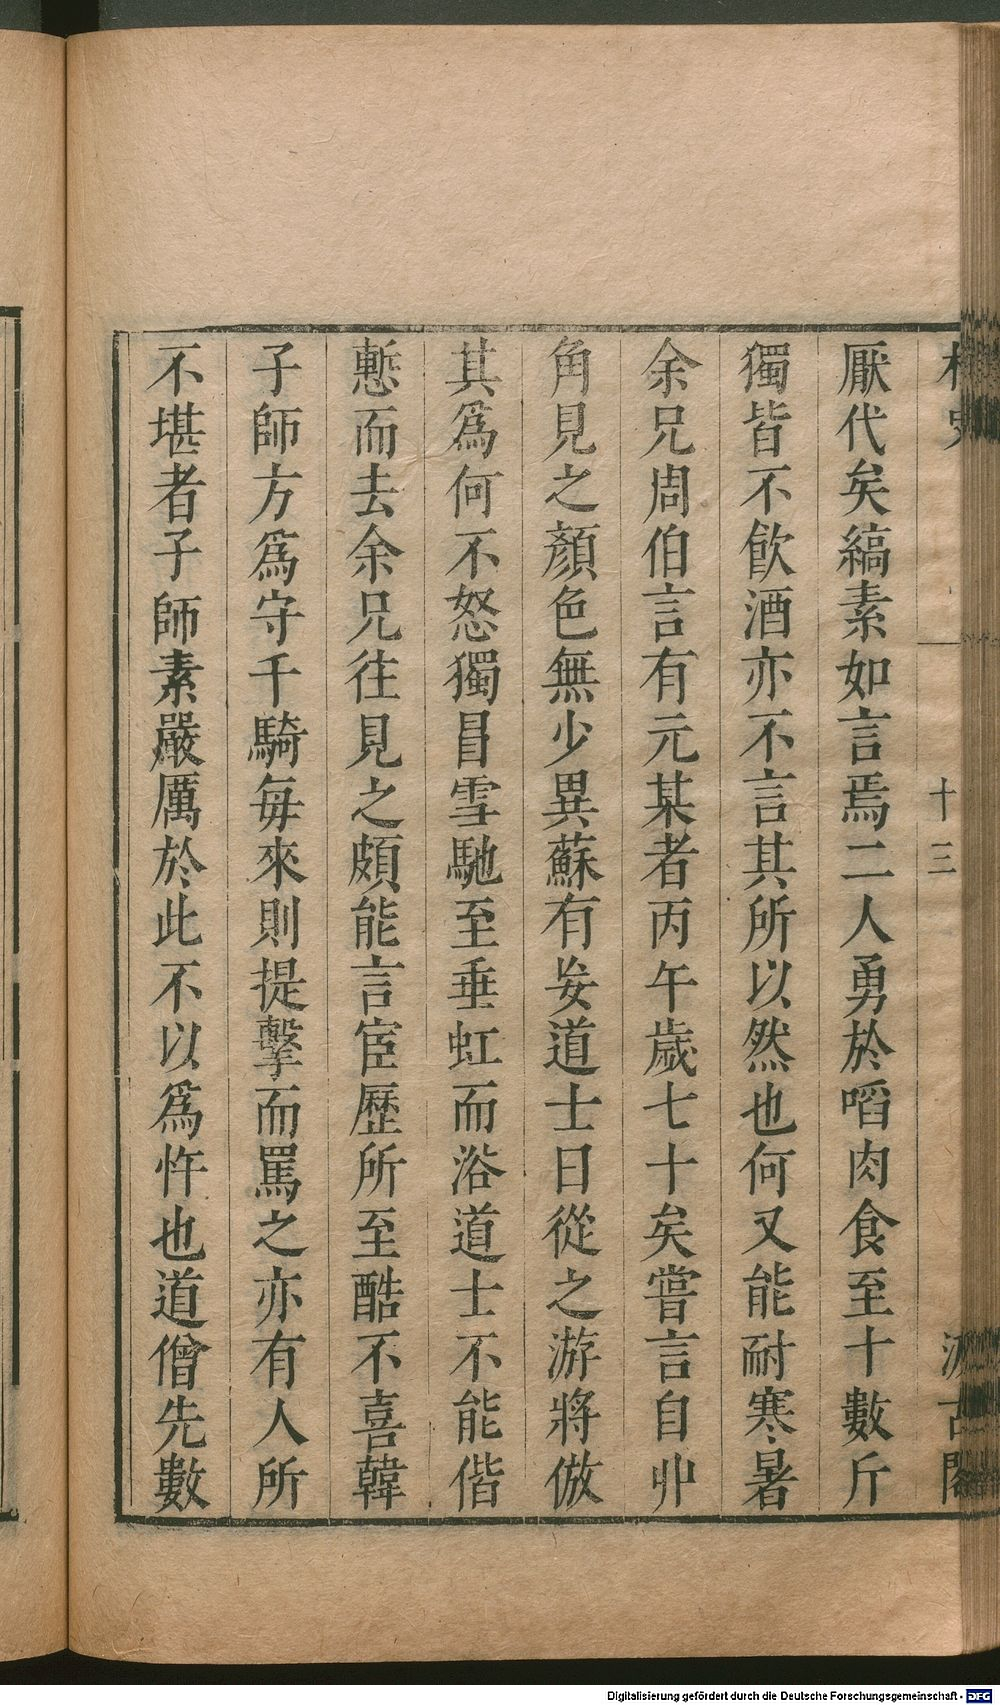 十三
厭代矣縞素如言焉二人勇於啗肉食至十數斤
獨皆不飲酒亦不言其所以然也何又能耐寒暑
余兄周伯言有元某者丙午歲七十矣嘗言自丱
角見之顏色無少異蘇有妄道士日從之游將倣
其爲何不怒獨冒雪馳至垂虹而浴道士不能偕
慙而去余兄往見之頗能言宦歷所至酷不喜韓
子師方爲守千騎每來則提擊而罵之亦有人所
不堪者子師素嚴厲於此不以爲忤也道僧先數
Digitalisierung gefördert durch die Deutsche Forschungsgemeinschaft - DFG